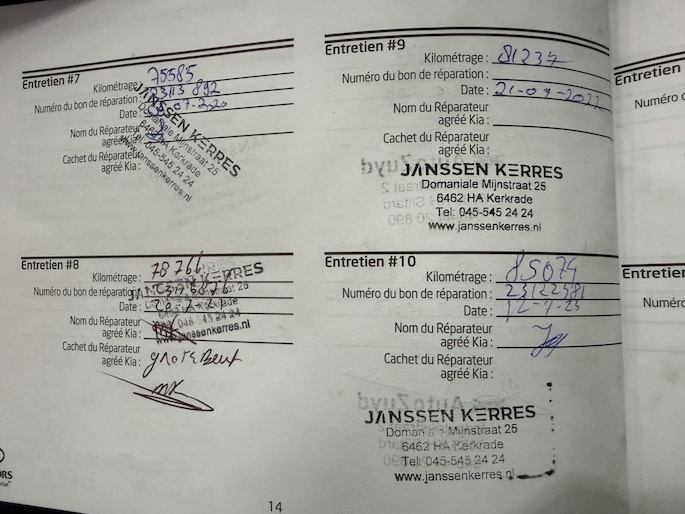 Entretien #7
Kilométrage : 75585
Numéro du bon de réparation : 23113 892
Date : 07-2020
Nom du Réparateur
agréé Kia :
Cachet du Réparateur
agréé Kia :
JANSSEN KERRES
Domaniale Mijnstraat 25
6462 HA Kerkrade
Tel: 045-545 24 24
www.janssenkerres.nl
Entretien #8
Kilométrage : 78766
Numéro du bon de réparation :
Date :
Nom du Réparateur
agréé Kia :
Cachet du Réparateur
agréé Kia :
grote Beurt
JANSSEN KERRES
Domaniale Mijnstraat 25
6462 HA Kerkrade
045-545 24 24
www.janssenkerres.nl
Entretien #9
Kilométrage : 81237
Numéro du bon de réparation :
Date : 21-07-2022
Nom du Réparateur
agréé Kia :
Cachet du Réparateur
agréé Kia :
JANSSEN KERRES
Domaniale Mijnstraat 25
6462 HA Kerkrade
Tel: 045-545 24 24
www.janssenkerres.nl
Entretien #10
Kilométrage : 85074
Numéro du bon de réparation : 23122581
Date : 12-7-23
Nom du Réparateur
agréé Kia :
Cachet du Réparateur
agréé Kia :
JANSSEN KERRES
Doman Mijnstraat 25
6462 HA Kerkrade
Tel: 045-545 24 24
www.janssenkerres.nl
14
Entretien
Numéro
Entretien
Numéro